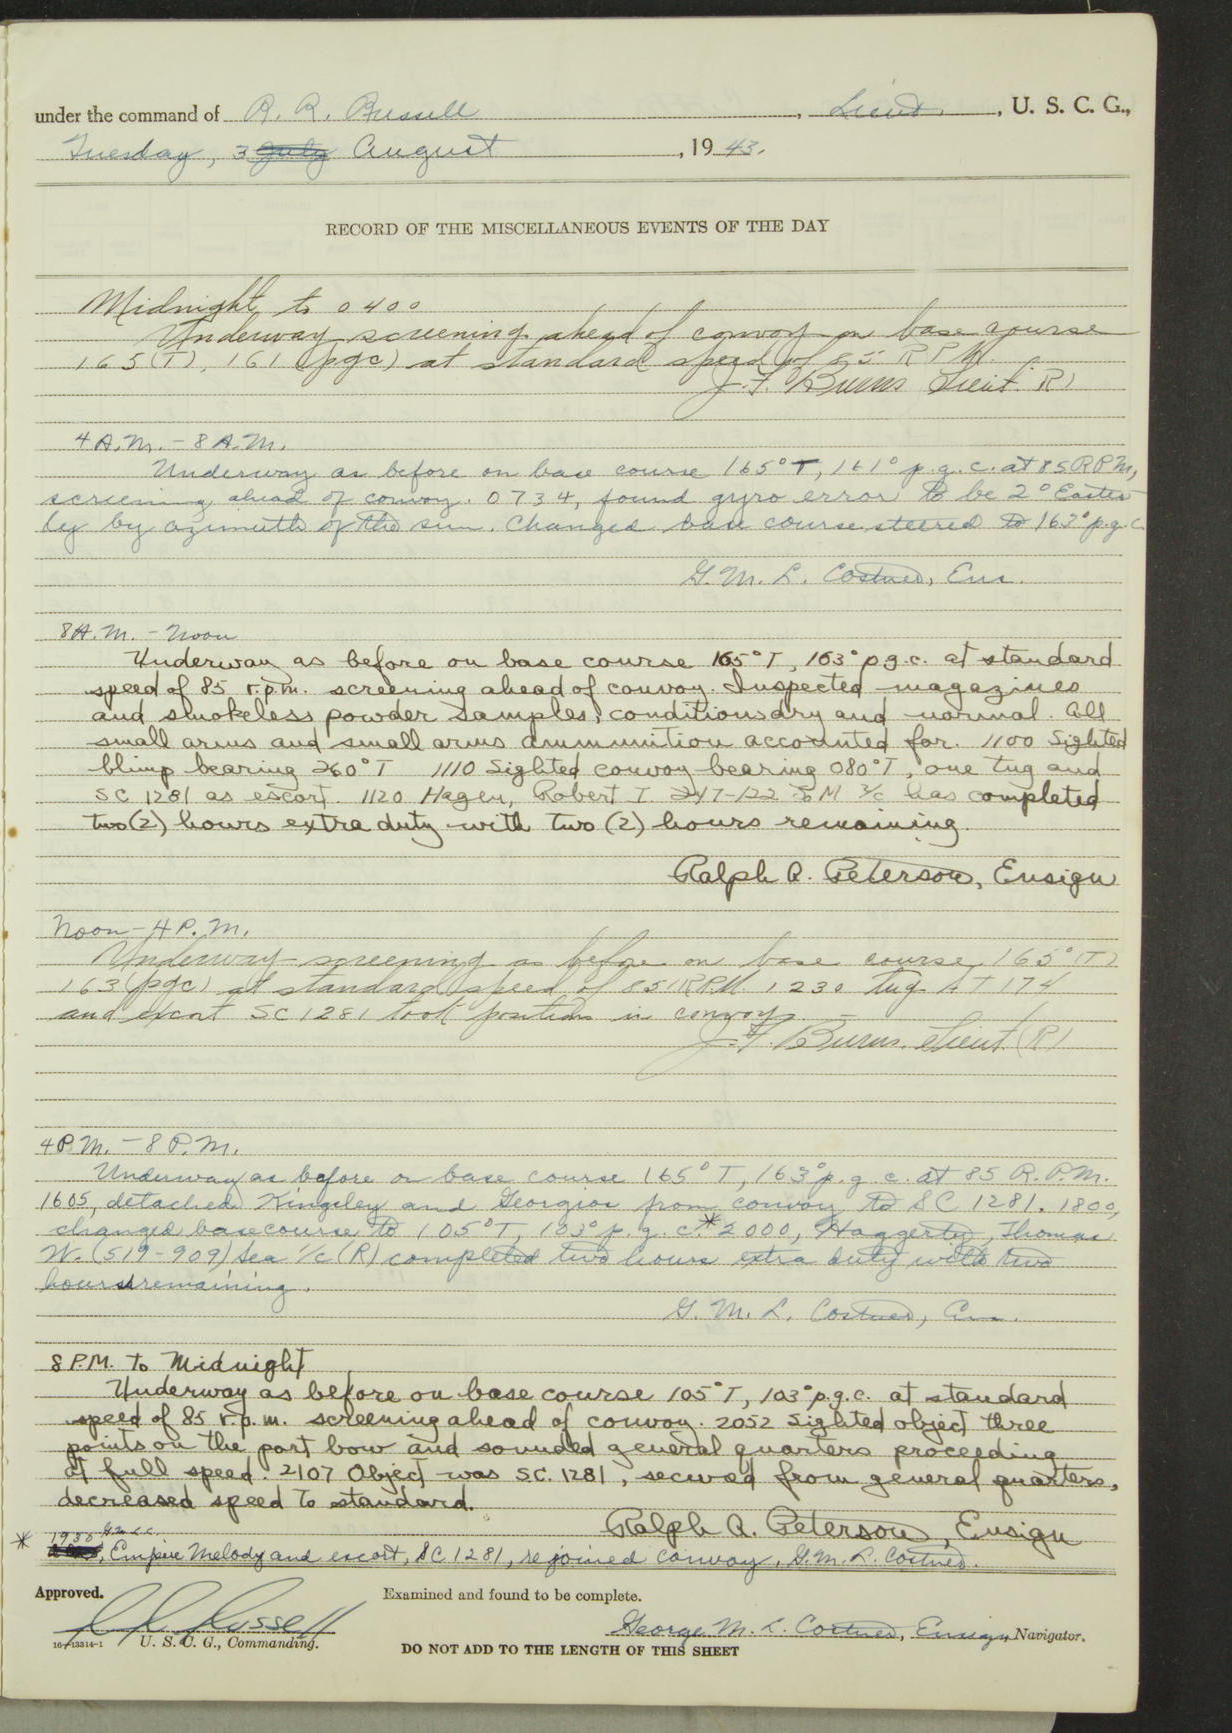 under the command of R. R. Russell, Lieut., U. S. C. G.,
Tuesday, 3 July August, 1943.
RECORD OF THE MISCELLANEOUS EVENTS OF THE DAY
Midnight to 0400
Underway screening ahead of convoy on base course
165(T), 161 (pgc) at standard speed of 85 RPM.
J. F. Burns Lieut. (R)
4 A.M. - 8 A.M.
Underway as before on base course 165° T, 161° p.g.c. at 85 RPM,
screening ahead of convoy. 0734, found gyro error to be 2° Easter
ly by azimuth of the sun. Changed base course steered to 163° p.g.c.
G. M. L. Costner, Ens.
8 A.M. - Noon
Underway as before on base course 165° T, 163° p.g.c. at standard
speed of 85 r.p.m. screening ahead of convoy. Inspected magazines
and smokeless powder samples; conditions dry and normal. All
small arms and small arms ammunition accounted for. 1100 Sighted
blimp bearing 260° T 1110 Sighted convoy bearing 080° T, one tug and
SC 1281 as escort. 1120 Hagen, Robert T. 247-122 M 3/c has completed
two (2) hours extra duty with two (2) hours remaining.
Ralph A. Peterson, Ensign
Noon - 4 P.M.
Underway screening as before on base course 165° (T)
163 (pgc) at standard speed of 85 RPM. 1230 tug AT 174
and escort SC 1281 took position in convoy.
J. F. Burns. Lieut. (R)
4 P.M. - 8 P.M.
Underway as before on base course 165° T, 163° p.g.c. at 85 R.P.M.
1605, detached Kingsley and Georgios from convoy to SC 1281. 1800,
changed base course to 105° T, 103° p.g.c.* 2000, Haggerty, Thomas
W. (519-909) Sea 1/c (R) completed two hours extra duty with two
hours remaining.
G. M. L. Costner, Ens.
8 P.M. to Midnight
Underway as before on base course 105° T, 103° p.g.c. at standard
speed of 85 r.p.m. screening ahead of convoy. 2052 Sighted object three
points on the port bow and sounded general quarters proceeding
at full speed. 2107 Object was SC. 1281, secured from general quarters,
decreased speed to standard.
Ralph A. Peterson, Ensign
G.M.L.C.
* 1930, Empire Melody and escort, SC 1281, rejoined convoy, G. M. L. Costner.
Approved. Examined and found to be complete.
R R Russell George M. L. Costner, Ensign Navigator.
16-13314-1 U. S. C. G., Commanding.
DO NOT ADD TO THE LENGTH OF THIS SHEET